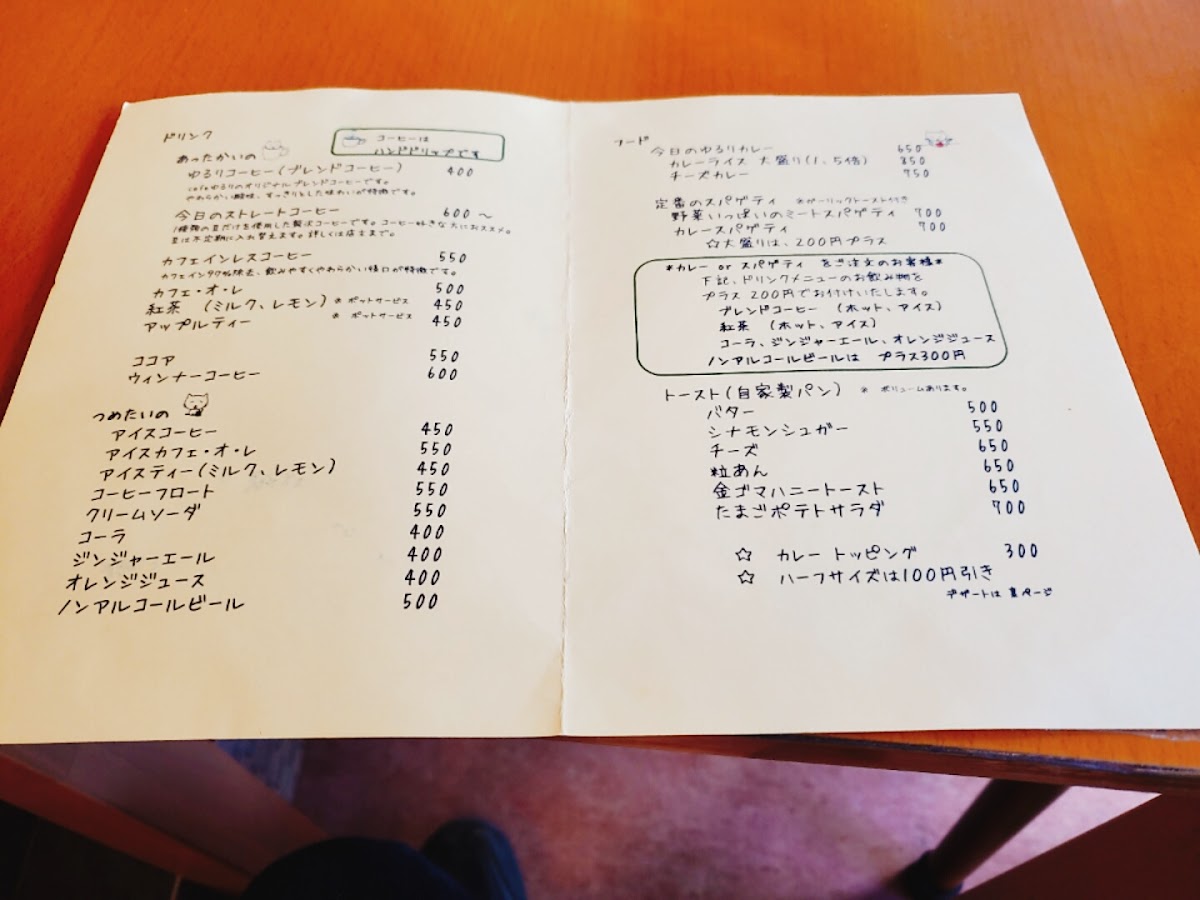 ドリンク
コーヒーは
ハンドドリップです
あったかいの
ゆるりコーヒー(ブレンドコーヒー) 400
cafeゆるりのオリジナルブレンドコーヒーです。
やわらかい酸味、すっきりとした味わいが特徴です。
今日のストレートコーヒー 600～
1種類の豆だけを使用した贅沢コーヒーです。コーヒー好きな方におススメ。
豆は不定期に入れ替えます。詳しくは店主まで。
カフェインレスコーヒー 550
カフェイン97%除去、飲みやすくやわらかい口が特徴です。
カフェ・オ・レ 500
紅茶 (ミルク、レモン) ※ポットサービス 450
アップルティー ※ポットサービス 450
ココア 550
ウィンナーコーヒー 600
つめたいの
アイスコーヒー 450
アイスカフェ・オ・レ 550
アイスティー(ミルク、レモン) 450
コーヒーフロート 550
クリームソーダ 550
コーラ 400
ジンジャーエール 400
オレンジジュース 400
ノンアルコールビール 500
フード
今日のゆるりカレー 650
カレーライス 大盛り(1、5倍) 850
チーズカレー 750
定番のスパゲティ ※ガーリックトースト付き
野菜いっぱいのミートスパゲティ 700
カレースパゲティ 700
☆大盛りは、200円プラス
*カレー or スパゲティ をご注文のお客様*
下記、ドリンクメニューのお飲み物を
プラス 200円でお付けいたします。
ブレンドコーヒー (ホット、アイス)
紅茶 (ホット、アイス)
コーラ、ジンジャーエール、オレンジジュース
ノンアルコールビールは プラス300円
トースト(自家製パン) ※ ボリュームあります。
バター 500
シナモンシュガー 550
チーズ 650
粒あん 650
金ゴマハニートースト 650
たまごポテトサラダ 700
☆ カレー トッピング 300
☆ ハーフサイズは100円引き
デザートは 裏ページ